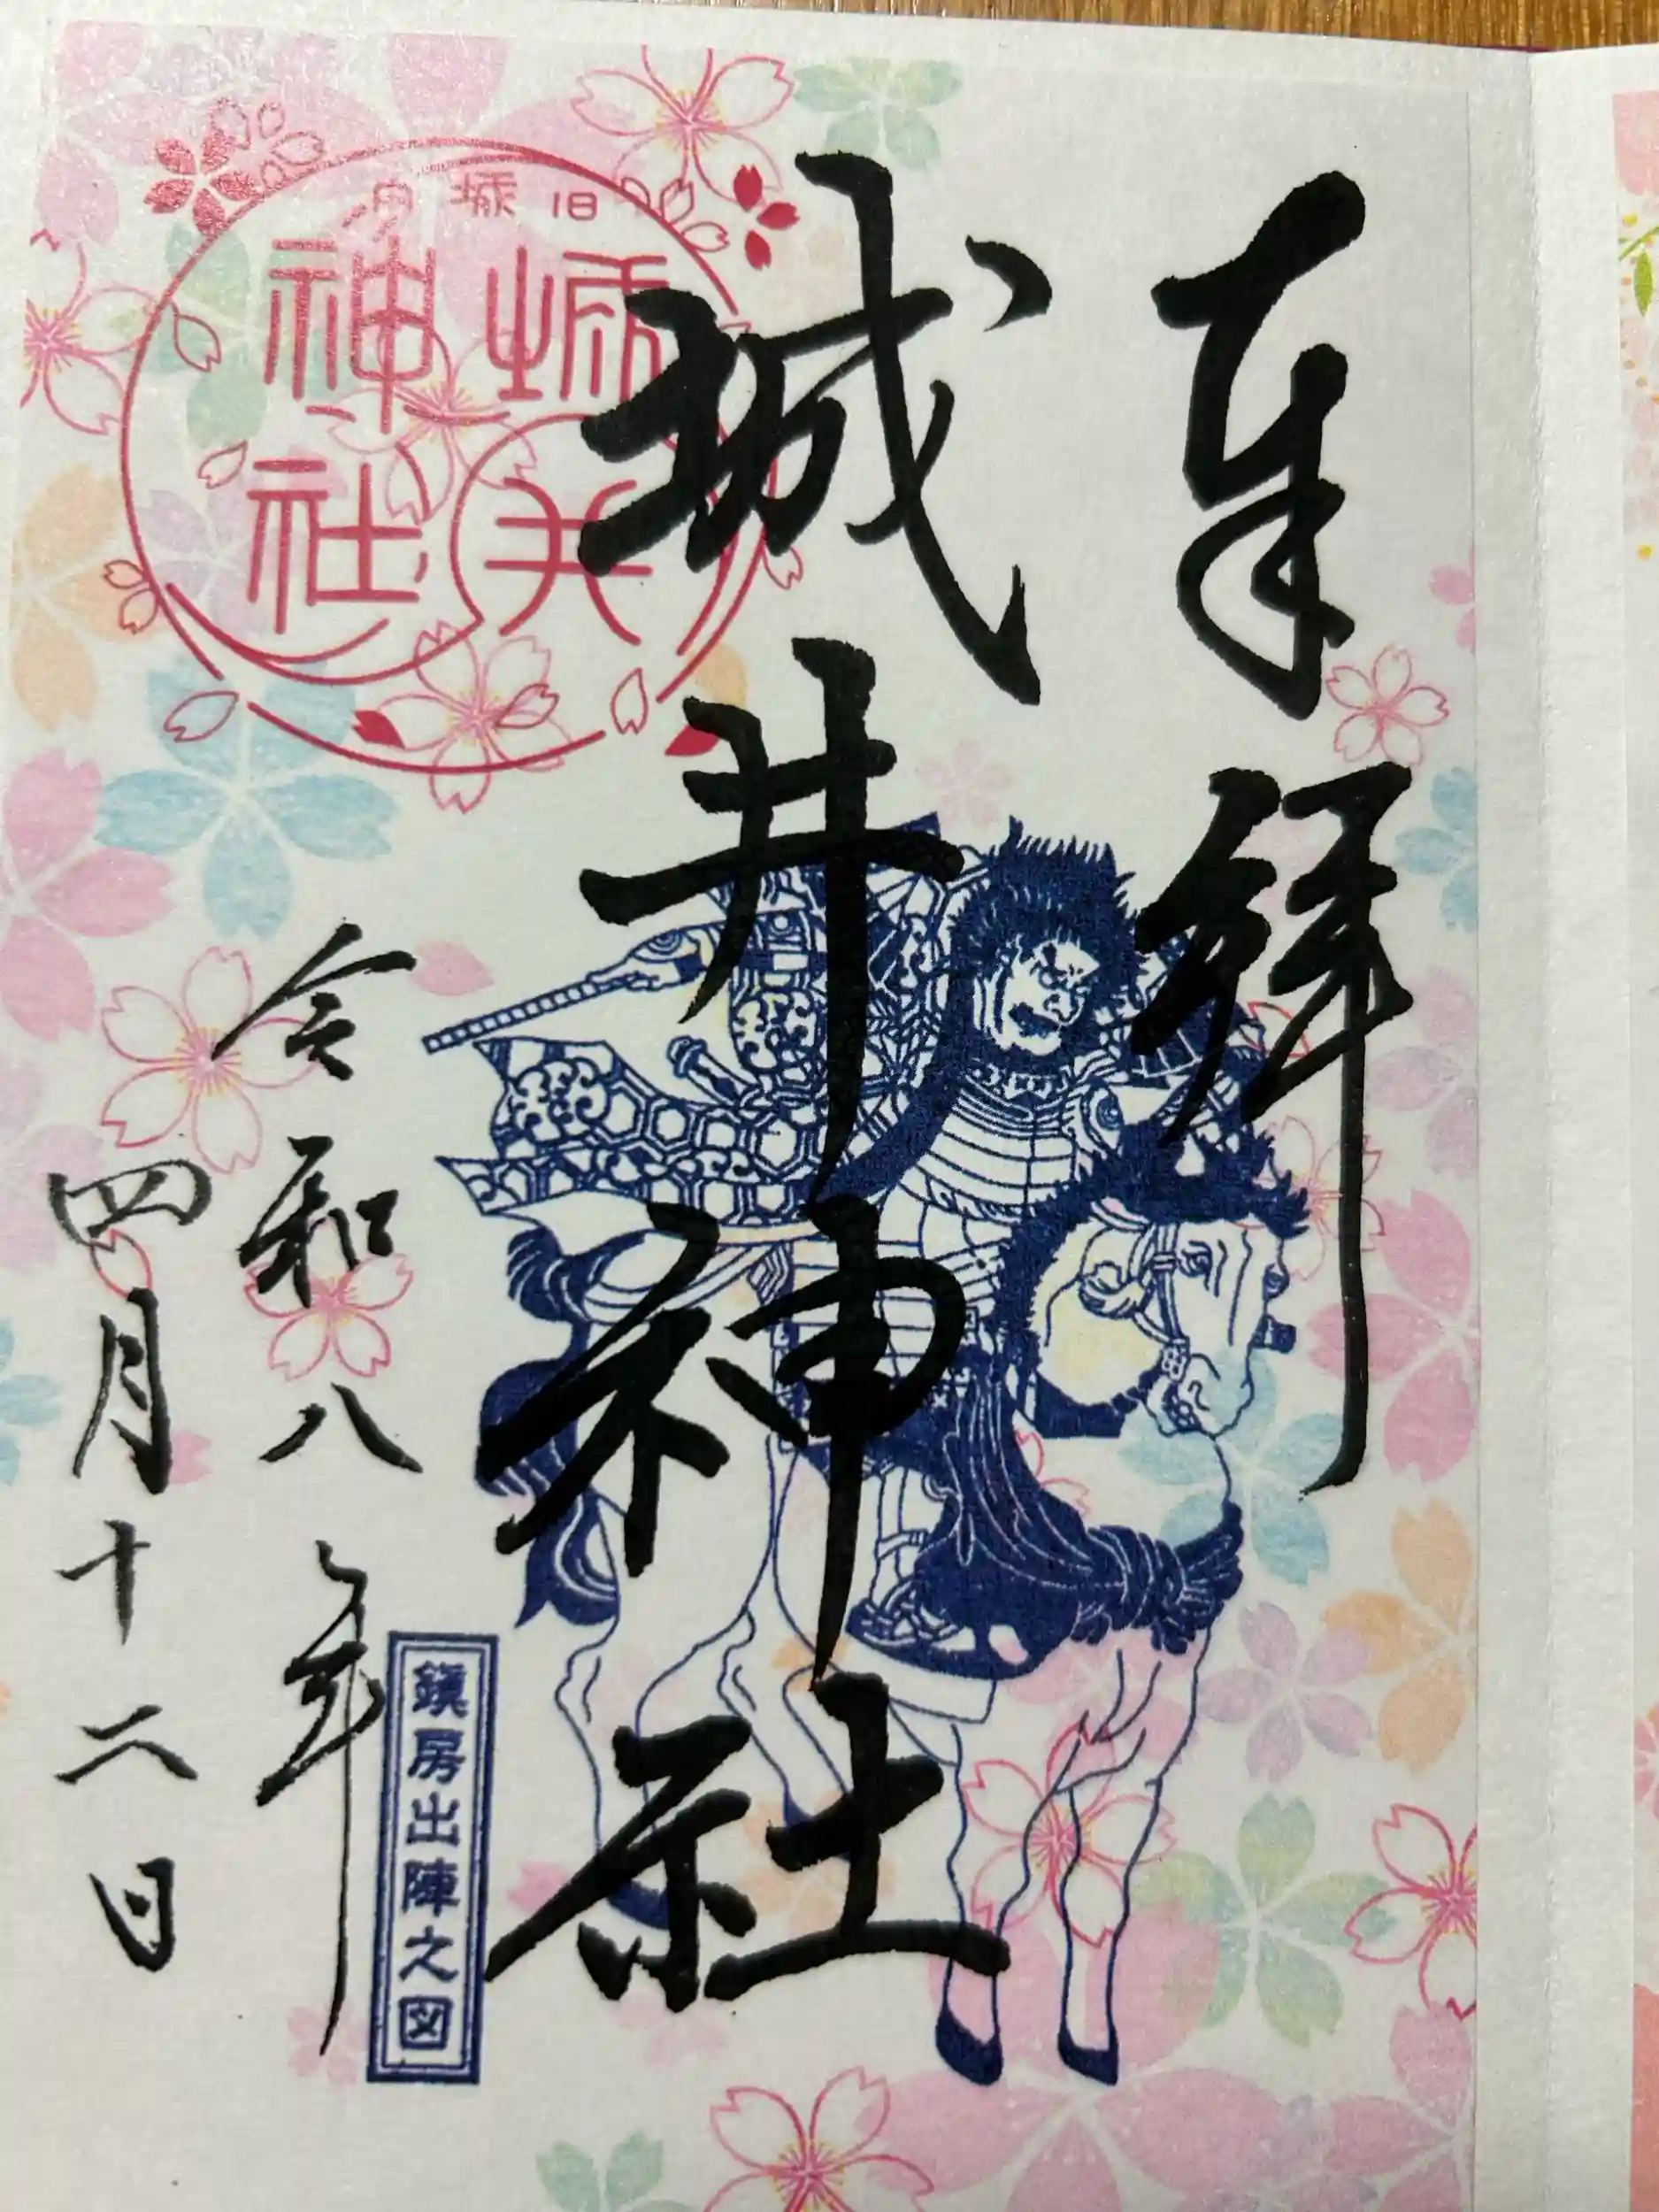 奉拝
城井神社
旧城内
城井神社
鎮房出陣之図
令和八年
四月十二日